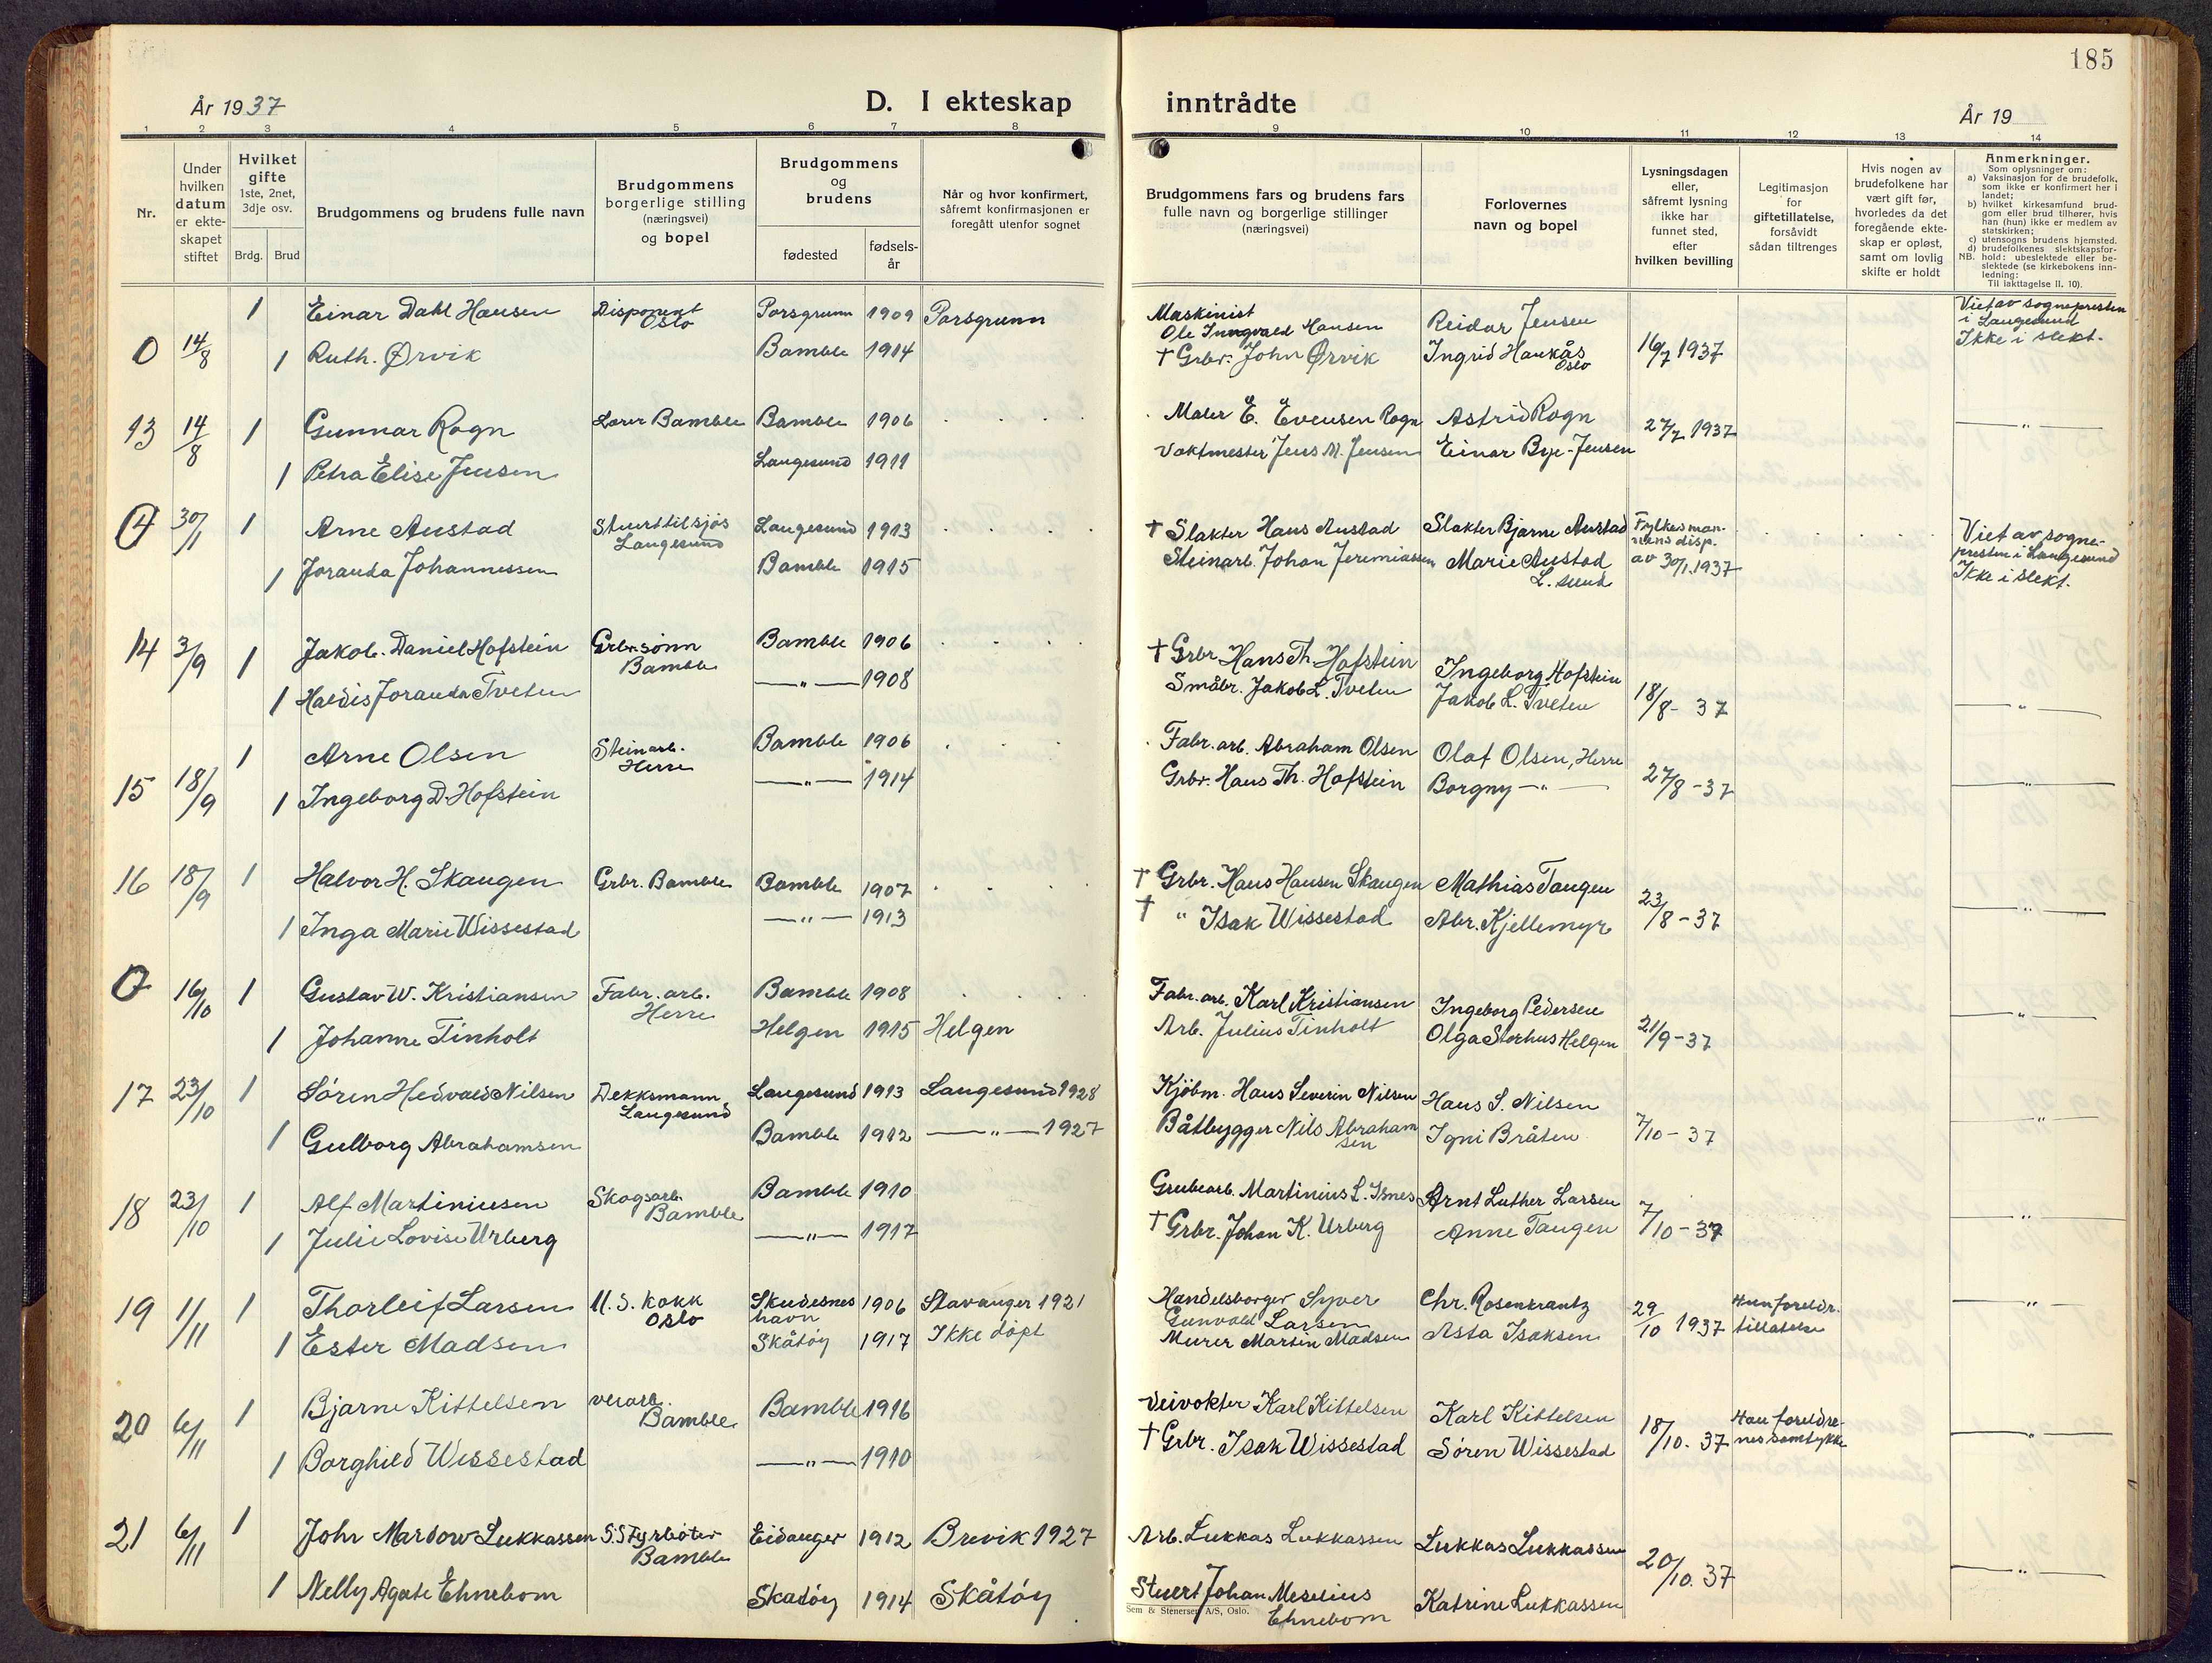 185
År 1937
D. I ekteskap
inntrådte
År 19
1 2 3 4 5 6 7 8 9 10 11 12 13 14
Nr.
Under
hvilken
datum
er ekte-
skapet
stiftet
Hvilket
gifte
1ste, 2net,
3dje osv.
Brdg. Brud
Brudgommens og brudens fulle navn
Brudgommens
borgerlige stilling
(næringsvei)
og bopel
Brudgommens
og
brudens
fødested
fødsels-
år
Når og hvor konfirmert,
såfremt konfirmasjonen er
foregått utenfor sognet
Brudgommens fars og brudens fars
fulle navn og borgerlige stillinger
(næringsvei)
Forlovernes
navn og bopel
Lysningsdagen
eller,
såfremt lysning
ikke har
funnet sted,
efter
hvilken bevilling
Legitimasjon
for
giftetillatelse,
forsåvidt
sådan tiltrenges
Hvis nogen av
brudefolkene har
vært gift før,
hvorledes da det
foregående ekte-
skap er opløst,
samt om lovlig
skifte er holdt
Anmerkninger.
Som oplysninger om:
a) Vaksinasjon for de brudefolk,
som ikke er konfirmert her i
landet;
b) hvilket kirkesamfund brud-
gom eller brud tilhører, hvis
han (hun) ikke er medlem av
statskirken;
c) utensogns brudens hjemsted.
d) brudefolkenes slektskapsfor-
NB. hold: ubeslektede eller be-
slektede (se kirkebokens inn-
ledning:
Til iakttagelse II. 10).
0 14/8 1 Einar Dahl Hansen Disponent Oslo Porsgrunn 1909 Porsgrunn Maskinist Ole Inngvald Hansen Reidar Jensen 16/7 1937 Viet av sognepresten
i Langesund
1 Ruth. Ørvik Bamble 1914 † Grbr. John Ørvik Ingrid Haukås Oslo Ikke i slekt.
13 14/8 1 Gunnar Rogn Lærer Bamble Bamble 1906 Maler E. Evensen Rogn Astrid Rogn 27/7 1937 —"—
1 Petra Elise Jensen Langesund 1911 Vaktmester Jens M. Jensen Einar Bye-Jensen
30/1 1 Arne Austad Stuert til sjøs Langesund Langesund 1913 † Slakter Hans Austad Slakter Bjarne Austad Fylkesman-
nens disp.
av 30/1.1937 Viet av sogne-
presten i Langesund
Ikke i slekt.
1 Joranda Johannessen Bamble 1915 Steinarb. Johan Jeremiassen Marie Austad L. sund
14 3/9 1 Jakob. Daniel Hofstein Grbr.sønn Bamble Bamble 1906 † Grbr Hans Th. Hofstein Ingeborg Hofstein
1 Haldis Joranda Tveten —"— 1908 Småbr. Jakob L. Tveten Jakob L. Tveten 18/8- 37 —"—
15 18/9 1 Arne Olsen Steinarb. Herre Bamble 1906 Fabr. arb. Abraham Olsen Olaf Olsen, Herre
1 Ingeborg D. Hofstein —"— 1914 Grbr. Hans Th. Hofstein Borgny —"— 27/8-37 —"—
16 18/9 1 Halvor H. Skaugen Grbr. Bamble Bamble 1907 † Grbr. Hans Hansen Skaugen Mathias Tangen 23/8-37 —"—
1 Inga Marie Wissestad —"— 1913 † " Isak Wissestad Abr. Kjellemyr
0 16/10 1 Gustav W. Kristiansen Fabr. arb. Herre Bamble 1908 Fabr. arb. Karl Kristiansen Ingeborg Pedersen
1 Johanne Tinholt Helgen 1915 Helgen Arb. Julius Tinholt Olga Storhus Helgen 21/9-37 —"—
17 23/10 1 Søren Hedvald Nilsen Dekksmann Langesund Langesund 1913 Langesund 1928 Kjöbm. Hans Severin Nilsen Hans S. Nilsen
1 Gulborg Abrahamsen Bamble 1912 —"— 1927 Båtbygger Nils Abraham
sen Igni Bråten 7/10- 37 —"—
18 23/10 1 Alf Martiniusen Skogsarb. Bamble Bamble 1910 Grubearb. Martinius L. Isnes Arnt Luther Larsen
1 Julie Lovise Urberg —"— 1917 † Grbr. Johan K. Urberg Anne Tangen 7/10-37 —"—
19 11/11 1 Thorleif Larsen M.S. kokk Oslo Skudesnes
havn 1906 Stavanger 1921 Handelsborger Syver
Gunvald Larsen Chr. Rosenkrantz 29/10 1937 Hun foreldr.
tillatelse —"—
1 Ester Madsen Skåtöy 1917 Ikke döpt Murer Martin Madsen Asta Isaksen
20 6/11 1 Bjarne Kittelsen veiarb. Bamble Bamble 1916 Veivokter Karl Kittelsen Karl Kittelsen 18/10. 37 Han foreldre-
nes samtykke —"—
1 Borghild Wissestad —"— 1910 † Grbr. Isak Wissestad Sören Wissestad
21 6/11 1 John Mardow Lukkassen S.S Fyrböter Bamble Eidanger 1912 Brevik 1927 Arb. Lukkas Lukkassen Lukkas Lukkassen 20/10. 37 —"—
1 Nelly Agate Ehnebom Skatöy 1914 Skåtöy Stuert Johan Meselius
Ehnebom Katrine Lukkassen
Sem & Stenersen A/S, Oslo.